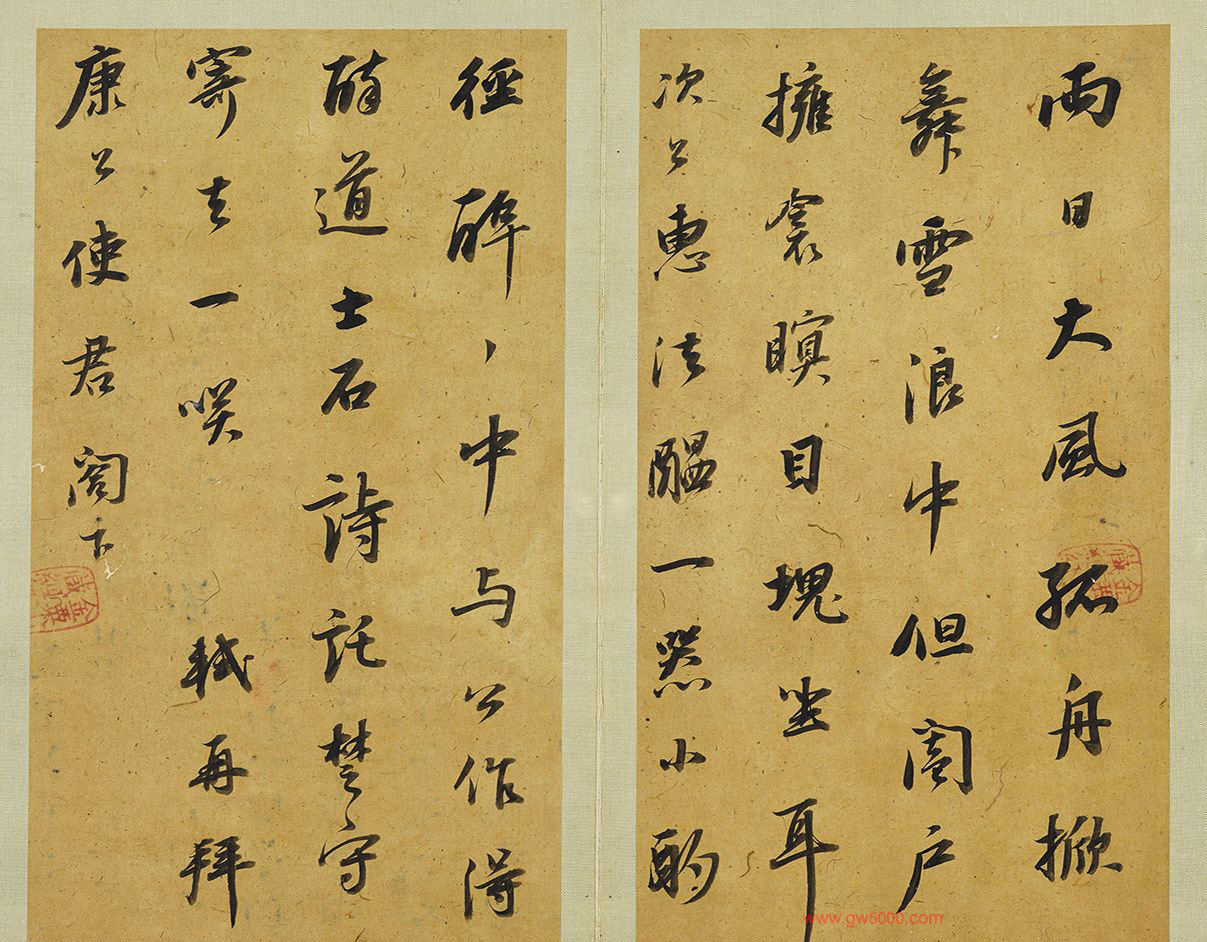 兩日大風孤舟掀
舞雪浪中但闔戶
擁衾瞑目塊坐耳
次公惠法醞一器小酌
徑醉丶中与公作得
醉道士石詩託楚守
寄去一咲 軾再拜
康公使君閤下
www.gw5000.com